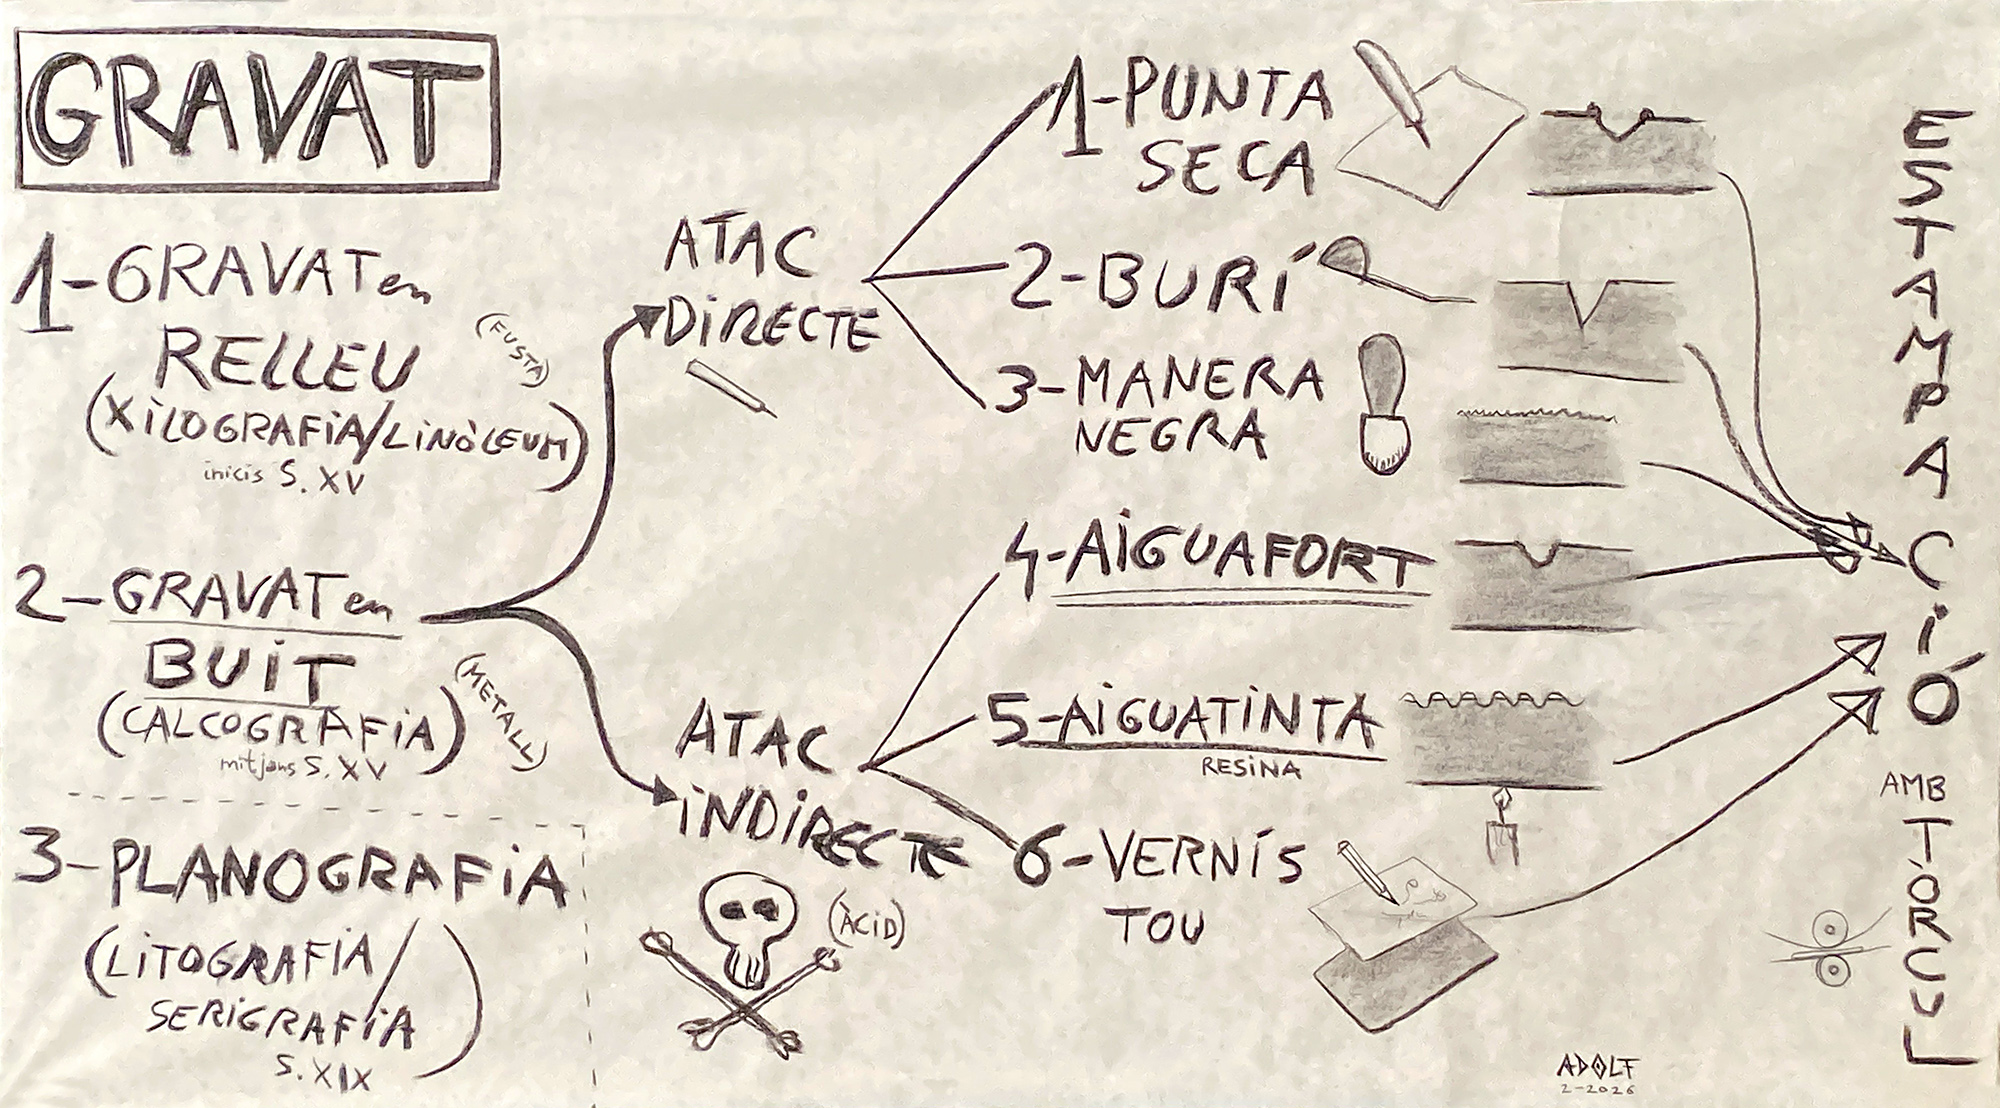 GRAVAT
1-GRAVAT en
RELLEU
(FUSTA)
(XILOGRAFIA/LINÒLEUM)
inicis S. XV
2-GRAVAT en
BUIT
(CALCOGRAFIA)
(METALL)
mitjans S. XV
3-PLANOGRAFIA
(LITOGRAFIA/
SERIGRAFIA)
S. XIX
ATAC
DIRECTE
1-PUNTA
SECA
2-BURÍ
3-MANERA
NEGRA
ATAC
INDIRECTE
(ÀCID)
4-AIGUAFORT
5-AIGUATINTA
RESINA
6-VERNÍS
TOU
ESTAMPACIÓ
AMB
TÒRCUL
ADOLF
2-2026